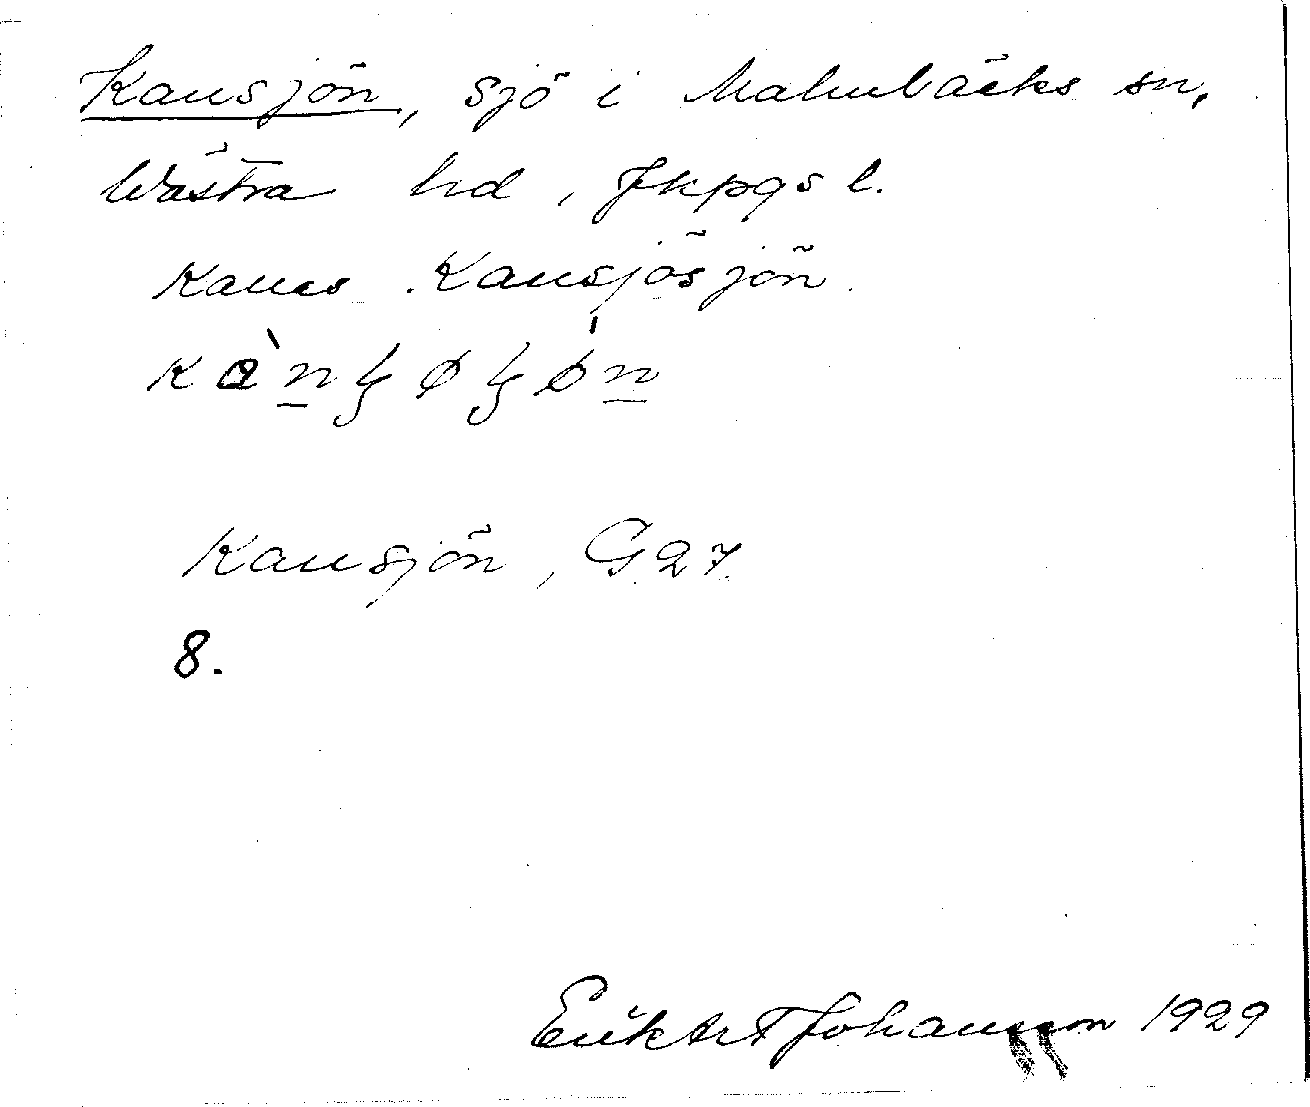 Kansjön, sjö i Malmbäcks sn,
Västra hd, Jkpgs l.
Kansjösjön
Kansjön, G27.
8.
Erik Art Johansson 1929